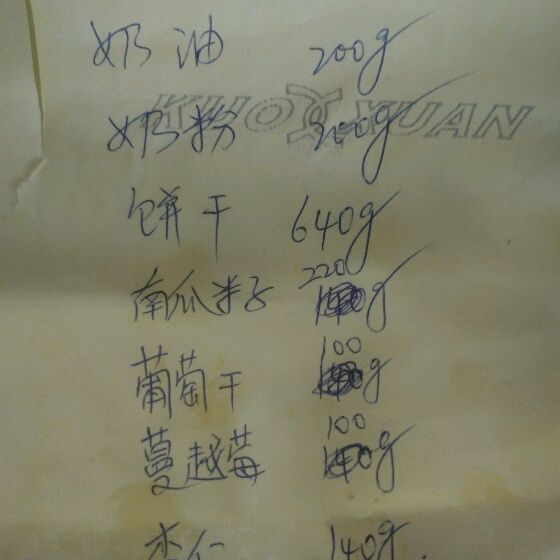 奶油 200g
KHOXXUAN
奶粉 200g
饼干 640g
南瓜籽子 220g
葡萄干 100g
蔓越莓 100g
杏仁 140g.